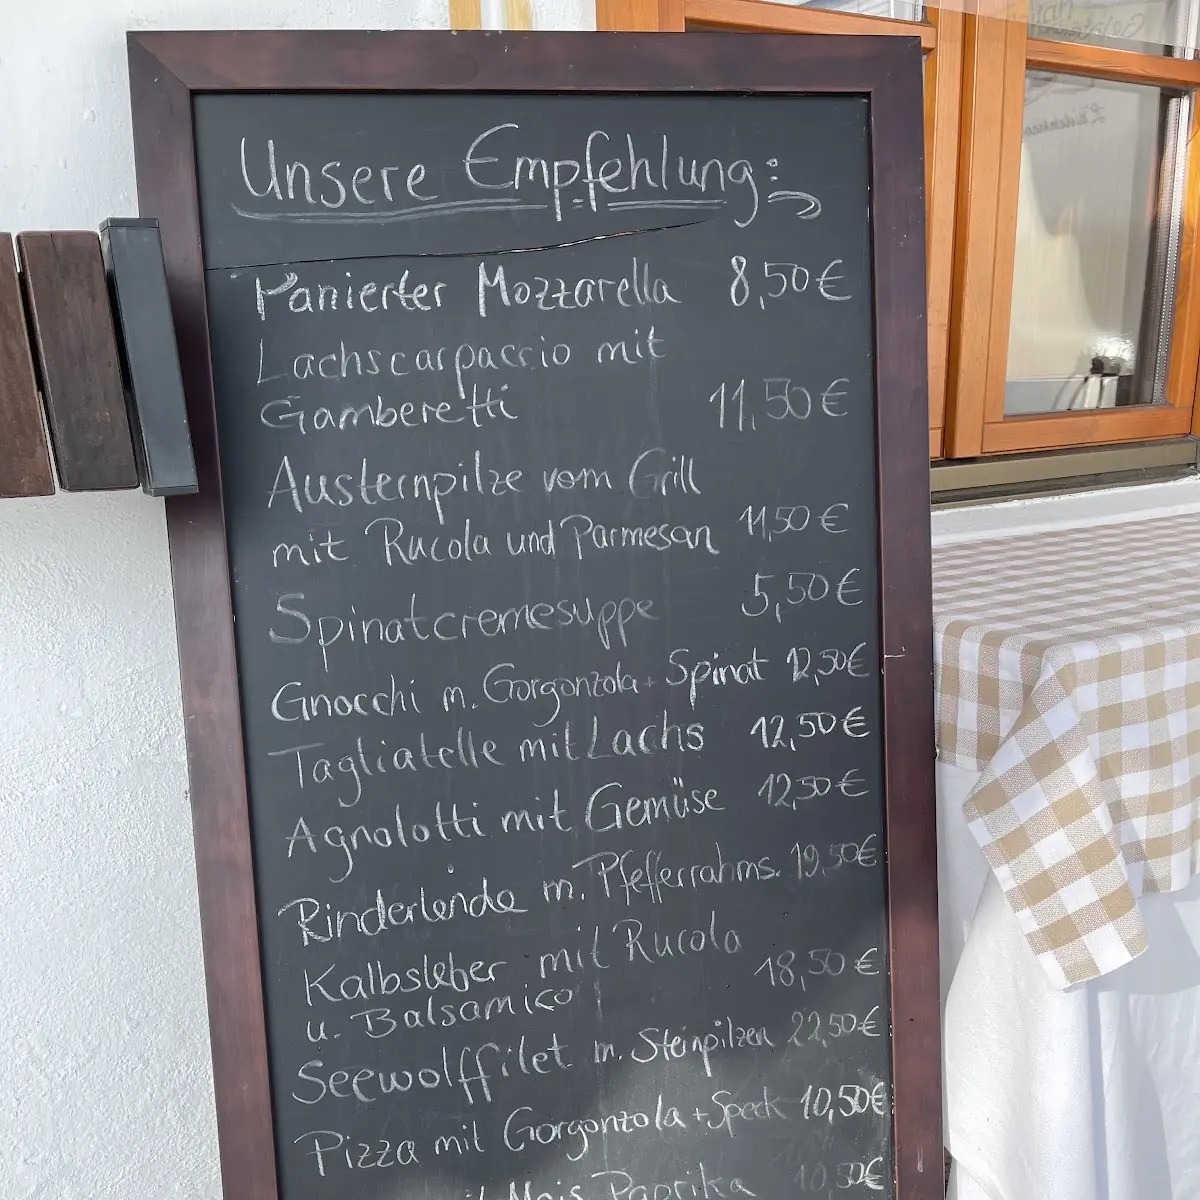 Unsere Empfehlung:
Panierter Mozzarella 8,50€
Lachscarpaccio mit
Gamberetti 11,50€
Austernpilze vom Grill
mit Rucola und Parmesan 11,50€
Spinatcremesuppe 5,50€
Gnocchi m. Gorgonzola + Spinat 12,50€
Tagliatelle mit Lachs 12,50€
Agnolotti mit Gemüse 12,50€
Rinderlende m. Pfefferrahms. 19,50€
Kalbsleber mit Rucola
u. Balsamico 18,50€
Seewolffilet m. Steinpilzen 22,50€
Pizza mit Gorgonzola + Speck 10,50€
Mais Paprika 10,50€